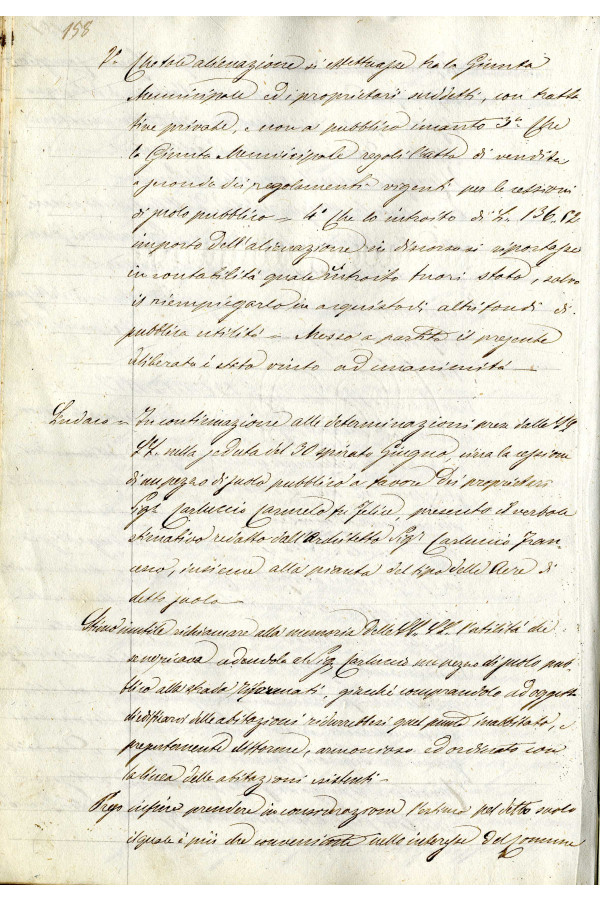 158
2° Che tale alienazione si effettuasse tra la Giunta
Municipale ed i proprietari suddetti, con tratta
tive private, e non a pubblico incanto 3° Che
la Giunta Municipale regoli l'atto di vendita
a seconda dei regolamenti vigenti per le cessioni
di suolo pubblico = 4° Che lo introito di L. 136.52
importo dell'alienazione in discorso si riportasse
in contabilità quale introito fuori stato, salvo
il riempiegarlo in acquisto di altri fondi di
pubblica utilità = Messo a partito il presente
deliberato è stato vinto ad unanimità —
Sindaco = In continuazione alle determinazioni prese dalle SS.
LL. nella seduta del 30 spirato Giugno, circa la cessione
di un pezzo di suolo pubblico a favore dei proprietari
Sigr. Carluccio Carmelo fu Felice, presento il verbale
stimativo redatto dall'Architetto Sigr. Carluccio Fran=
cesco, insieme alla pianta del tipo delle Aere di
detto suolo —
Stimo inutile richiamare alla memoria delle SS. LL. l'utilità che
cedendo al Sigr. Carluccio un pezzo di suolo pub=
blico alla strada Riformati, giacché comprandolo ad oggetto
di edificarvi delle abitazioni ridurrebbesi quel punto inabitato, e
armonioso ed ordinato con
la linea delle abitazioni esistenti.
prendere in considerazione pel detto suolo
il quale è più che conveniente nello interesse del Comune